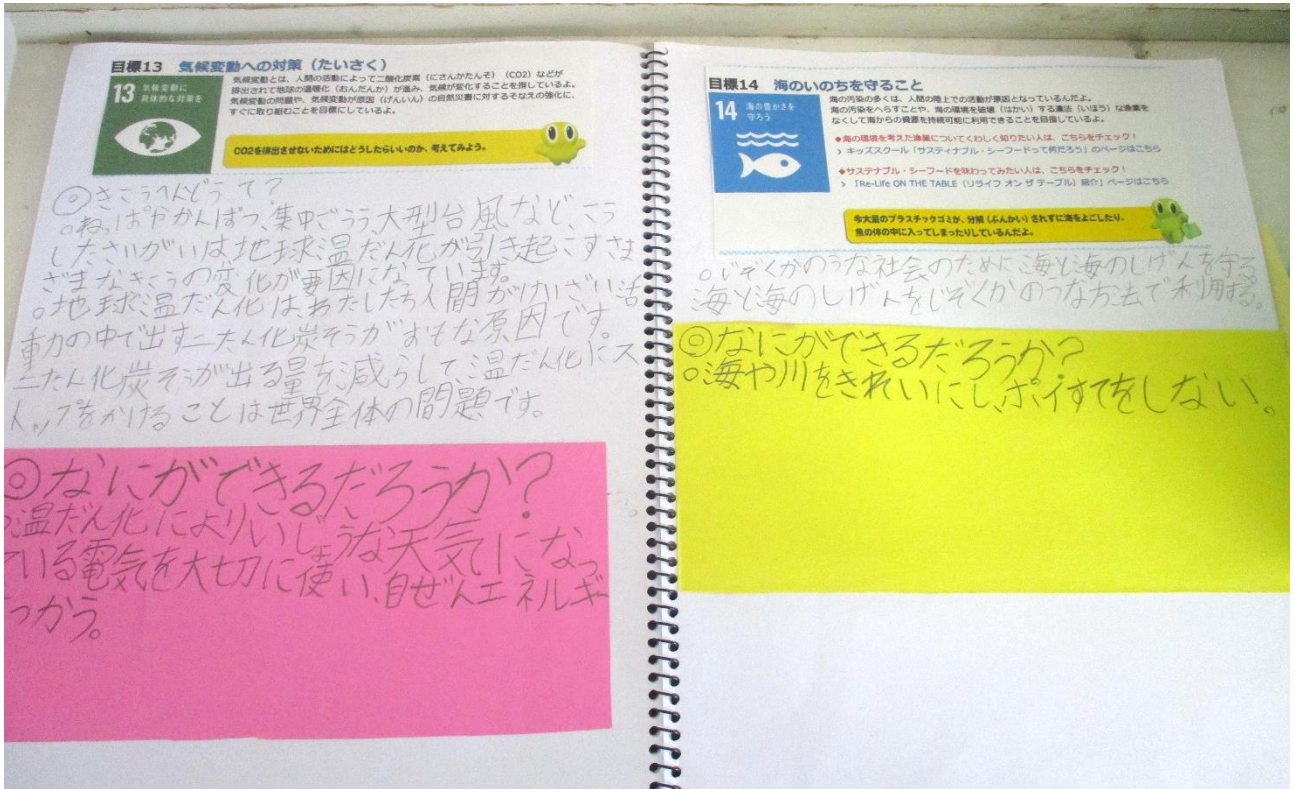 目標13 気候変動への対策（たいさく）
13 気候変動に
具体的な対策を
気候変動とは、人間の活動によって二酸化炭素（にさんかたんそ）（CO2）などが
排出されて地球の温暖化（おんだんか）が進み、気候が変化することを指しているよ。
気候変動の問題や、気候変動が原因（げんいん）の自然災害に対するそなえの強化に、
すぐに取り組むことを目標にしているよ。
CO2を排出させないためにはどうしたらいいのか、考えてみよう。
◎きこうへんどうて?
○ねっぱやかんばつ、集中ごうう大型台風など、こう
したさいがいは地球温だん化が引き起こすさま
ざまなきこうの変化が要因になています。
○地球温だん化は、わたしたち人間がけいざい活
動の中で出す二たん化炭そうがおもな原因です。
二たん化炭そうが出る量を減らして、温だん化にス
トップをかけることは世界全体の問題です。
◎なにができるだろうか?
○温だん化によりいじょうな天気になっ
ている電気を大切に使い、自ぜんエネルギー
つかう。
目標14 海のいのちを守ること
14 海の豊かさを
守ろう
海の汚染の多くは、人間の陸上での活動が原因となっているんだよ。
海の汚染をへらすことや、海の環境を破壊（はかい）する違法（いほう）な漁業を
なくして海からの資源を持続可能に利用できることを目指しているよ。
◆海の環境を考えた漁業についてくわしく知りたい人は、こちらをチェック！
> キッズスクール「サスティナブル・シーフードって何だろう」のページはこちら
◆サステナブル・シーフードを味わってみたい人は、こちらをチェック！
> 「Re-Life ON THE TABLE（リライフ オン ザ テーブル）紹介」ページはこちら
今大量のプラスチックゴミが、分解（ぶんかい）されずに海をよごしたり、
魚の体の中に入ってしまったりしているんだよ。
○じぞくかのうな社会のために海と海のしげんを守る
海と海のしげんをじぞくかのうな方法で利用する。
◎なにができるだろうか?
○海や川をきれいにし、ポイすてをしない。